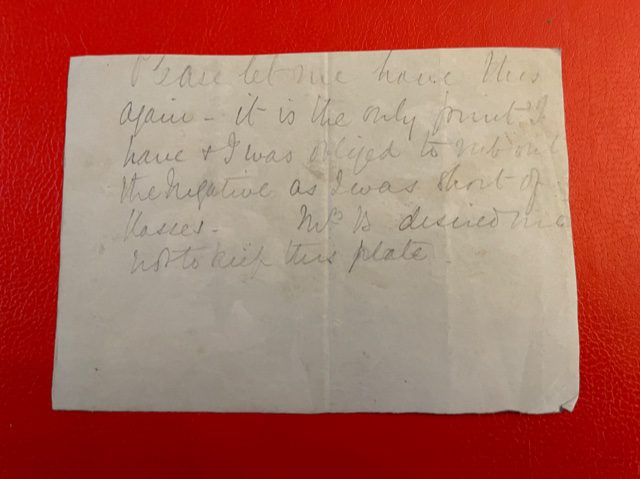 Please let me have this
again - it is the only print I
have & I was obliged to rub out
the negative as I was short of
glasses - Mrs B desired me
not to keep this plate.